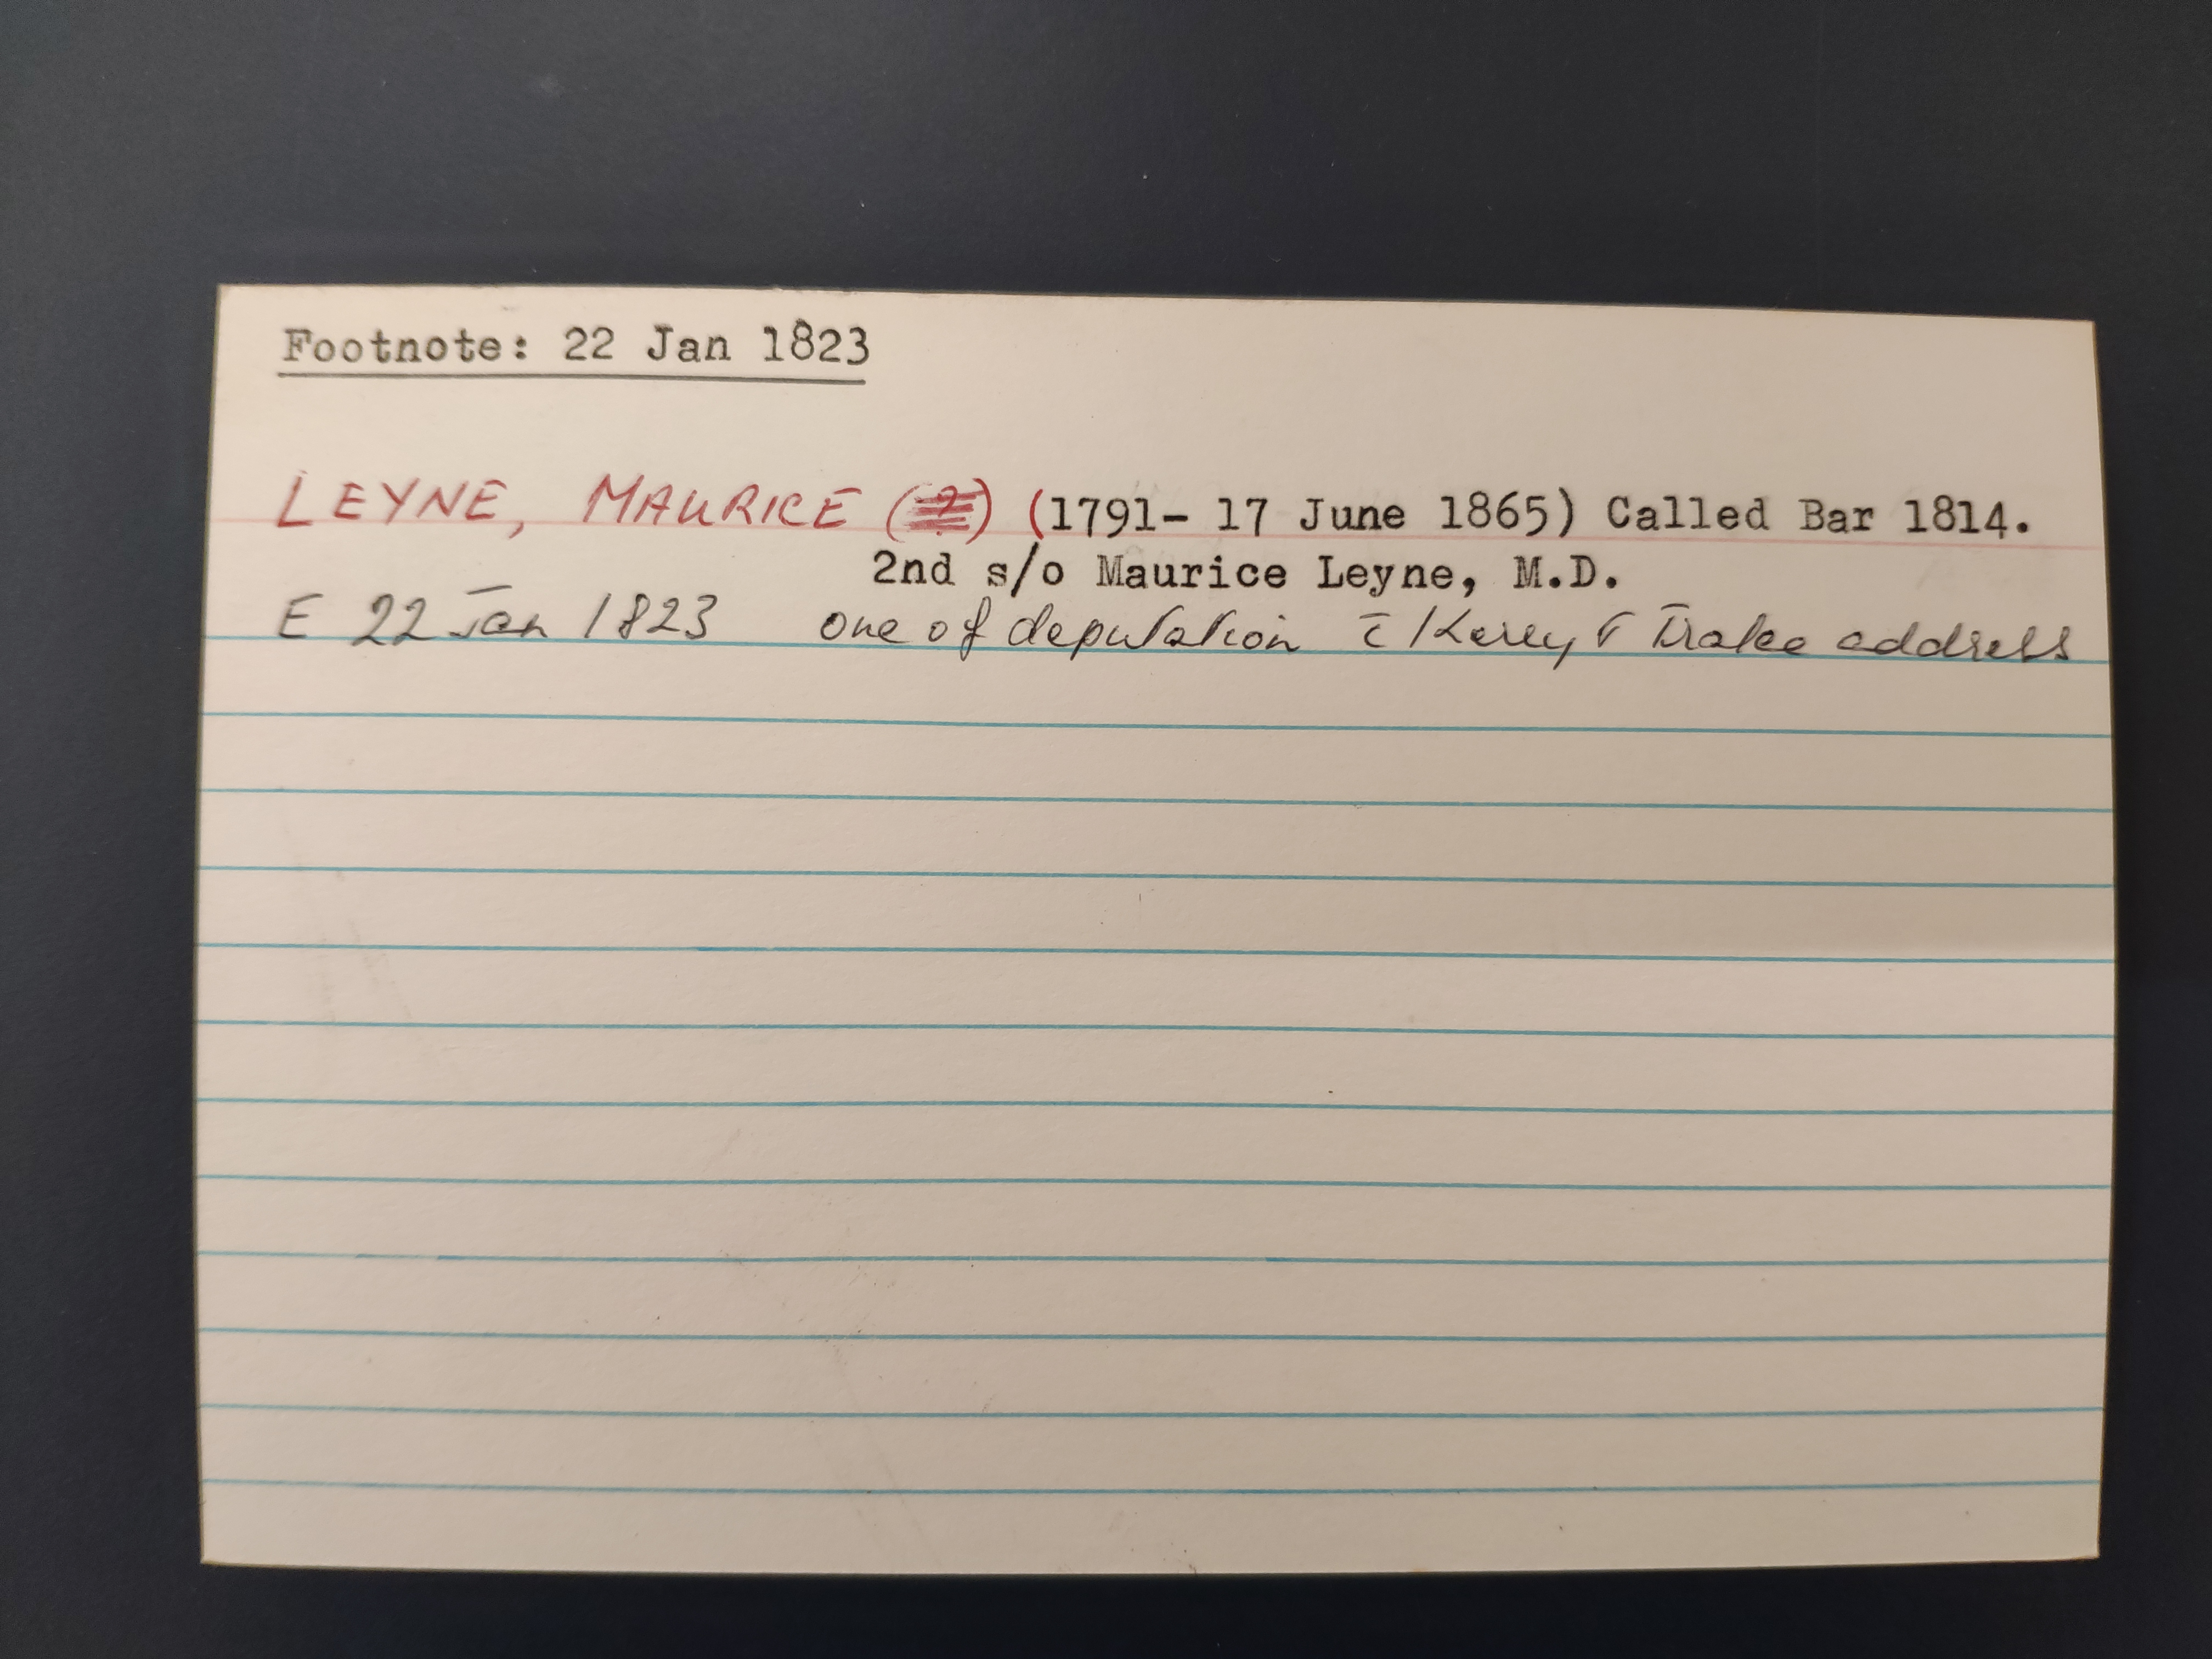 Footnote: 22 Jan 1823
LEYNE, MAURICE (?) (1791- 17 June 1865) Called Bar 1814.
2nd s/o Maurice Leyne, M.D.
E 22 Jan 1823 one of deputation c̄ Kerry & Tralee address